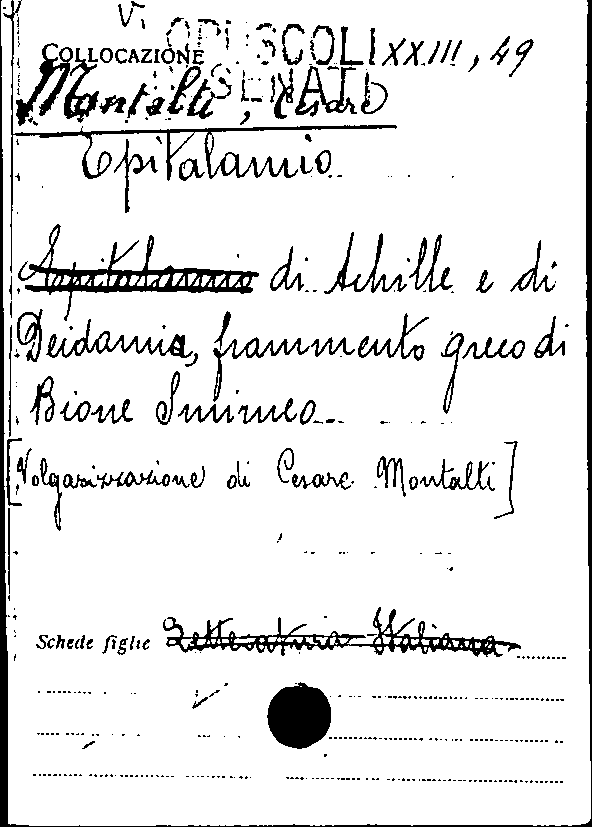 V.
COLLOCAZIONE OPUSCOLI XXIII, 49
SENATI
Montalti, Cesare
Epitalamio
Epitalamio di Achille e di
Deidamia, frammento greco di
Bione Smirneo
[Volgarizzazione di Cesare Montalti]
Schede figlie Letteratura Italiana